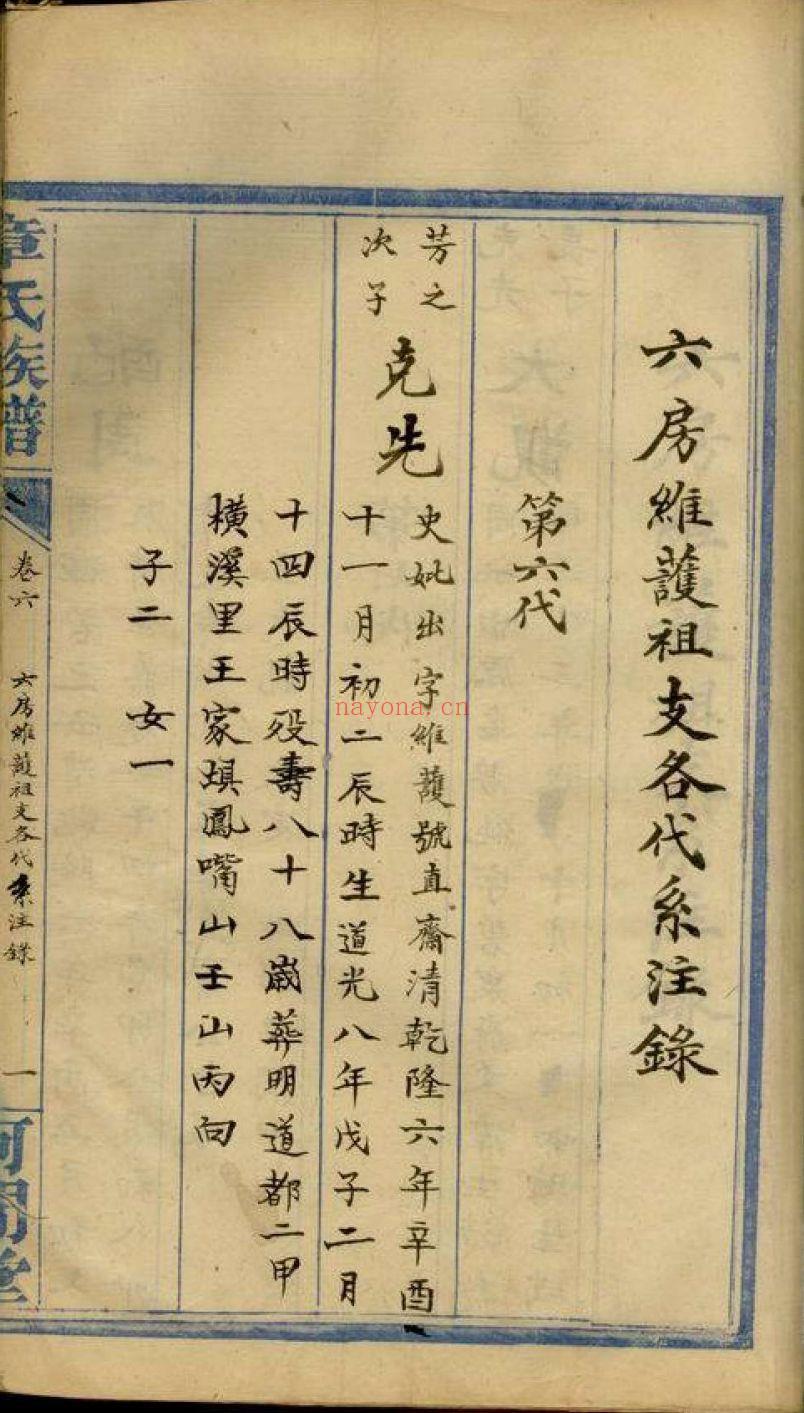 六房維護祖支各代系注錄
第六代
芳之
次子
克先
史妣出字維護號直齋清乾隆六年辛酉
十一月初二辰時生道光八年戊子二月
十四辰時歿壽八十八歲葬明道都二甲
橫溪里王家垻鳳嘴山壬山丙向
子二 女一
章氏族譜
卷六 六房維護祖支各代系注錄 一
河間堂
nayona.cn